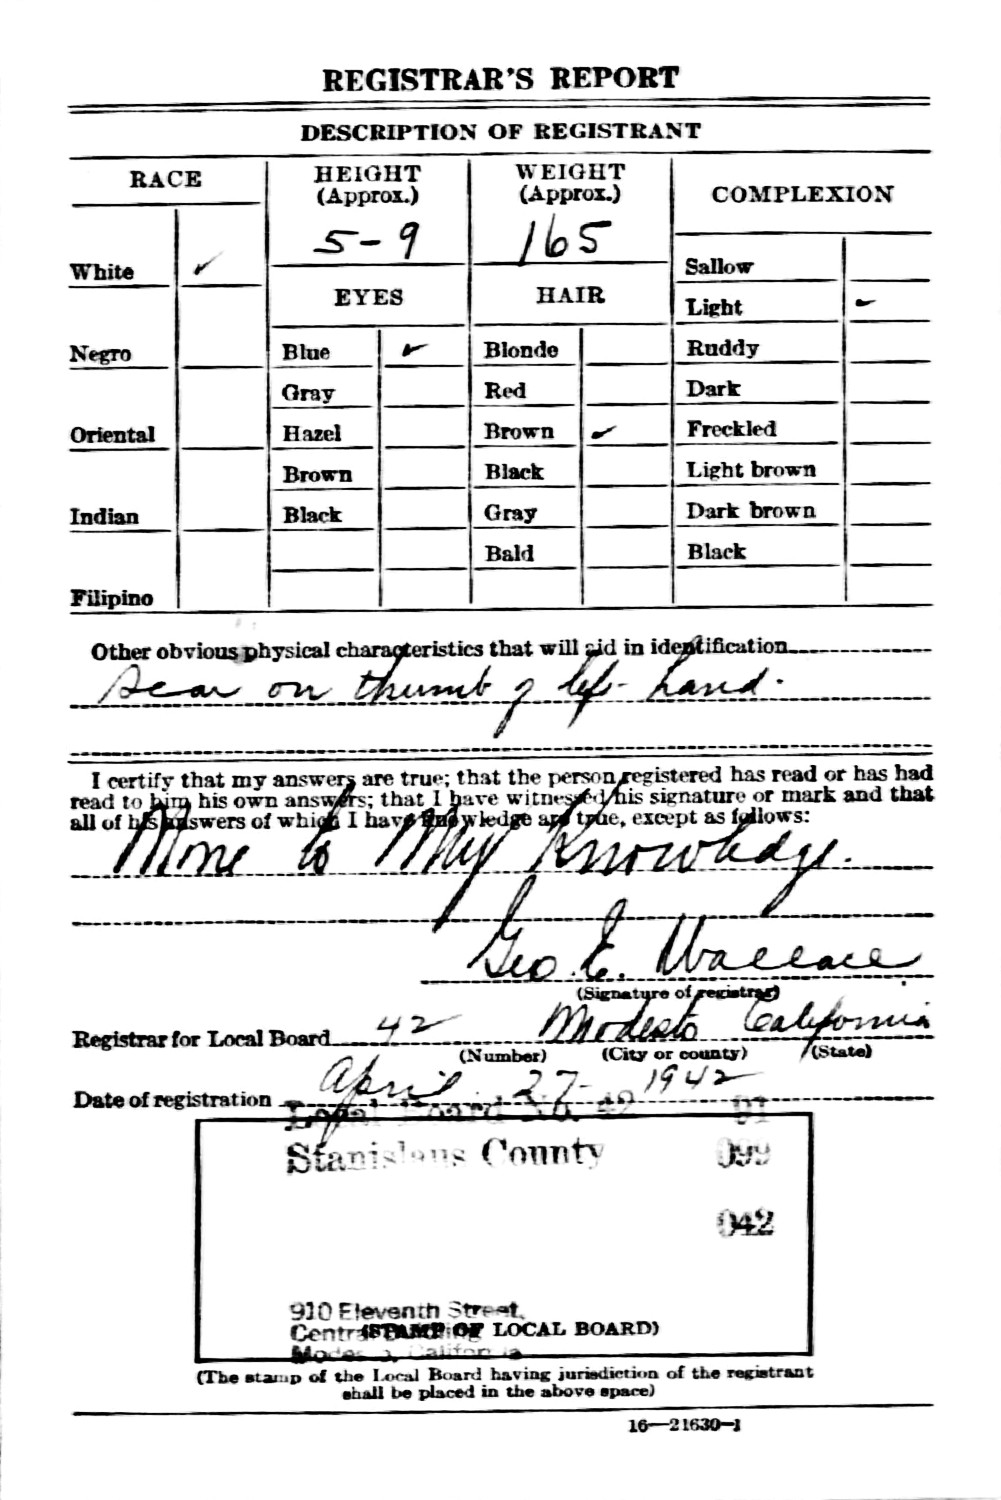 REGISTRAR'S REPORT
DESCRIPTION OF REGISTRANT
RACE
HEIGHT (Approx.)
5-9
WEIGHT (Approx.)
165
COMPLEXION
White ✓
Negro
Oriental
Indian
Filipino
EYES
Blue ✓
Gray
Hazel
Brown
Black
HAIR
Blonde
Red
Brown ✓
Black
Gray
Bald
Sallow
Light ✓
Ruddy
Dark
Freckled
Light brown
Dark brown
Black
Other obvious physical characteristics that will aid in identification
Scar on thumb of left hand.
I certify that my answers are true; that the person registered has read or has had
read to him his own answers; that I have witnessed his signature or mark and that
all of his answers of which I have knowledge are true, except as follows:
None to My Knowledge.
Geo. E. Wallace
(Signature of registrar)
Registrar for Local Board 42 Modesto California
(Number) (City or county) (State)
Date of registration April 27- 1942
Local Board No. 42 91
Stanislaus County 099
042
910 Eleventh Street,
Central Building
(STAMP OF LOCAL BOARD)
Modesto, California
(The stamp of the Local Board having jurisdiction of the registrant
shall be placed in the above space)
16—21630-1